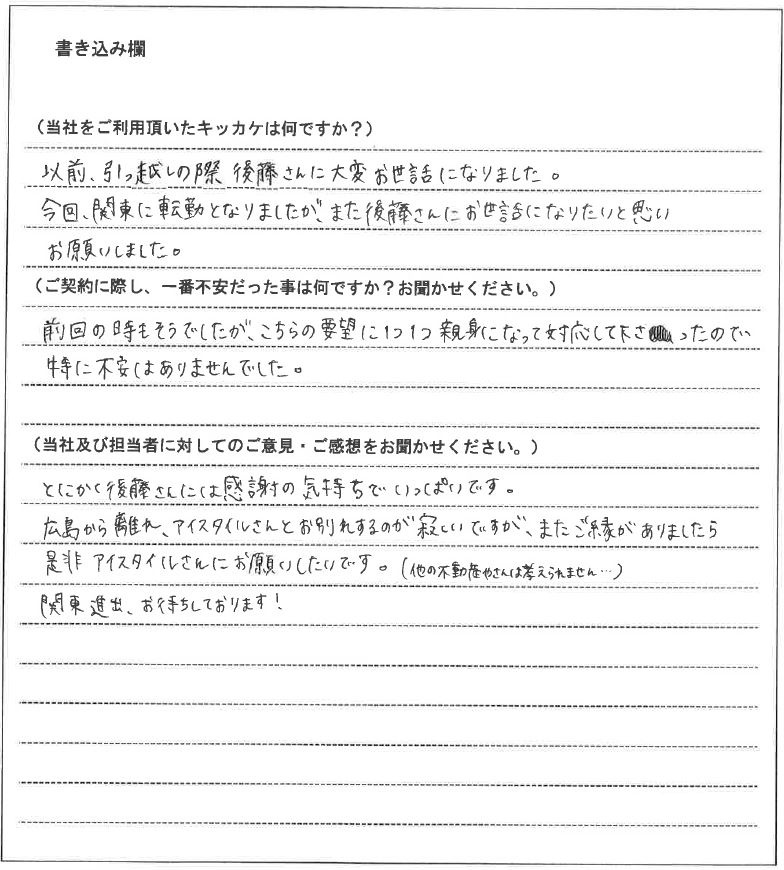 書き込み欄
(当社をご利用頂いたキッカケは何ですか?)
以前、引っ越しの際 後藤さんに大変お世話になりました。
今回、関東に転勤となりましたが、また後藤さんにお世話になりたいと思い
お願いしました。
(ご契約に際し、一番不安だった事は何ですか?お聞かせください。)
前回の時もそうでしたが、こちらの要望に1つ1つ親身になって対応して下さったので
特に不安はありませんでした。
(当社及び担当者に対してのご意見・ご感想をお聞かせください。)
とにかく後藤さんには感謝の気持ちでいっぱいです。
広島から離れ、アイスタイルさんとお別れするのが寂しいですが、またご縁がありましたら
是非アイスタイルさんにお願いしたいです。(他の不動産やさんは考えられません…)
関東進出、お待ちしております!